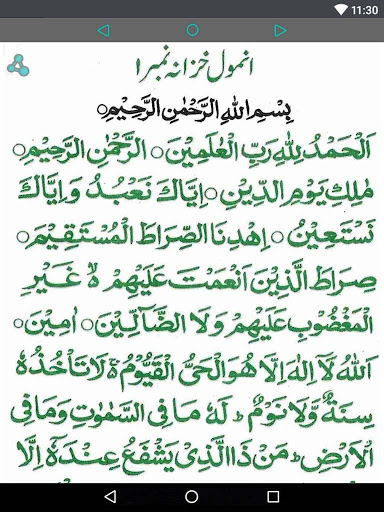 11:30
انمول خزانہ نمبر ۱
بِسْمِ اللهِ الرَّحْمٰنِ الرَّحِيْمِ
اَلْحَمْدُ لِلّٰهِ رَبِّ الْعٰلَمِيْنَ○ الرَّحْمٰنِ الرَّحِيْمِ○
مٰلِكِ يَوْمِ الدِّيْنِ○ اِيَّاكَ نَعْبُدُ وَ اِيَّاكَ
نَسْتَعِيْنُ○ اِهْدِنَا الصِّرَاطَ الْمُسْتَقِيْمَ○
صِرَاطَ الَّذِيْنَ اَنْعَمْتَ عَلَيْهِمْ ۙ غَيْرِ
الْمَغْضُوْبِ عَلَيْهِمْ وَلَا الضَّآلِّيْنَ○ اٰمِيْنَ○
اَللهُ لَآ اِلٰهَ اِلَّا هُوَ الْحَيُّ الْقَيُّوْمُ ۚ لَا تَاْخُذُهٗ
سِنَةٌ وَّلَا نَوْمٌ ؕ لَهٗ مَا فِى السَّمٰوٰتِ وَمَا فِى
الْاَرْضِ ؕ مَنْ ذَا الَّذِىْ يَشْفَعُ عِنْدَهٗٓ اِلَّا